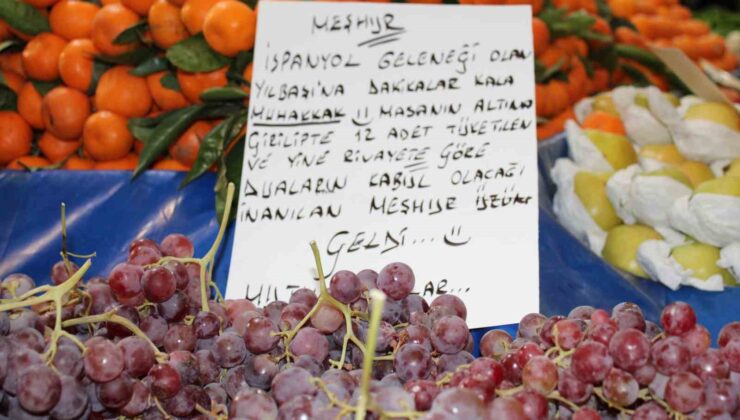 MEŞHUR
İSPANYOL GELENEĞİ OLAN
YILBAŞINA DAKİKALAR KALA
MUHAKKAK MASANIN ALTINA
GİRİLİPTE 12 ADET TÜKETİLEN
VE YİNE RİVAYETE GÖRE
DUALARIN KABUL OLACAĞI
İNANILAN MEŞHUR ÜZÜM
GELDİ...